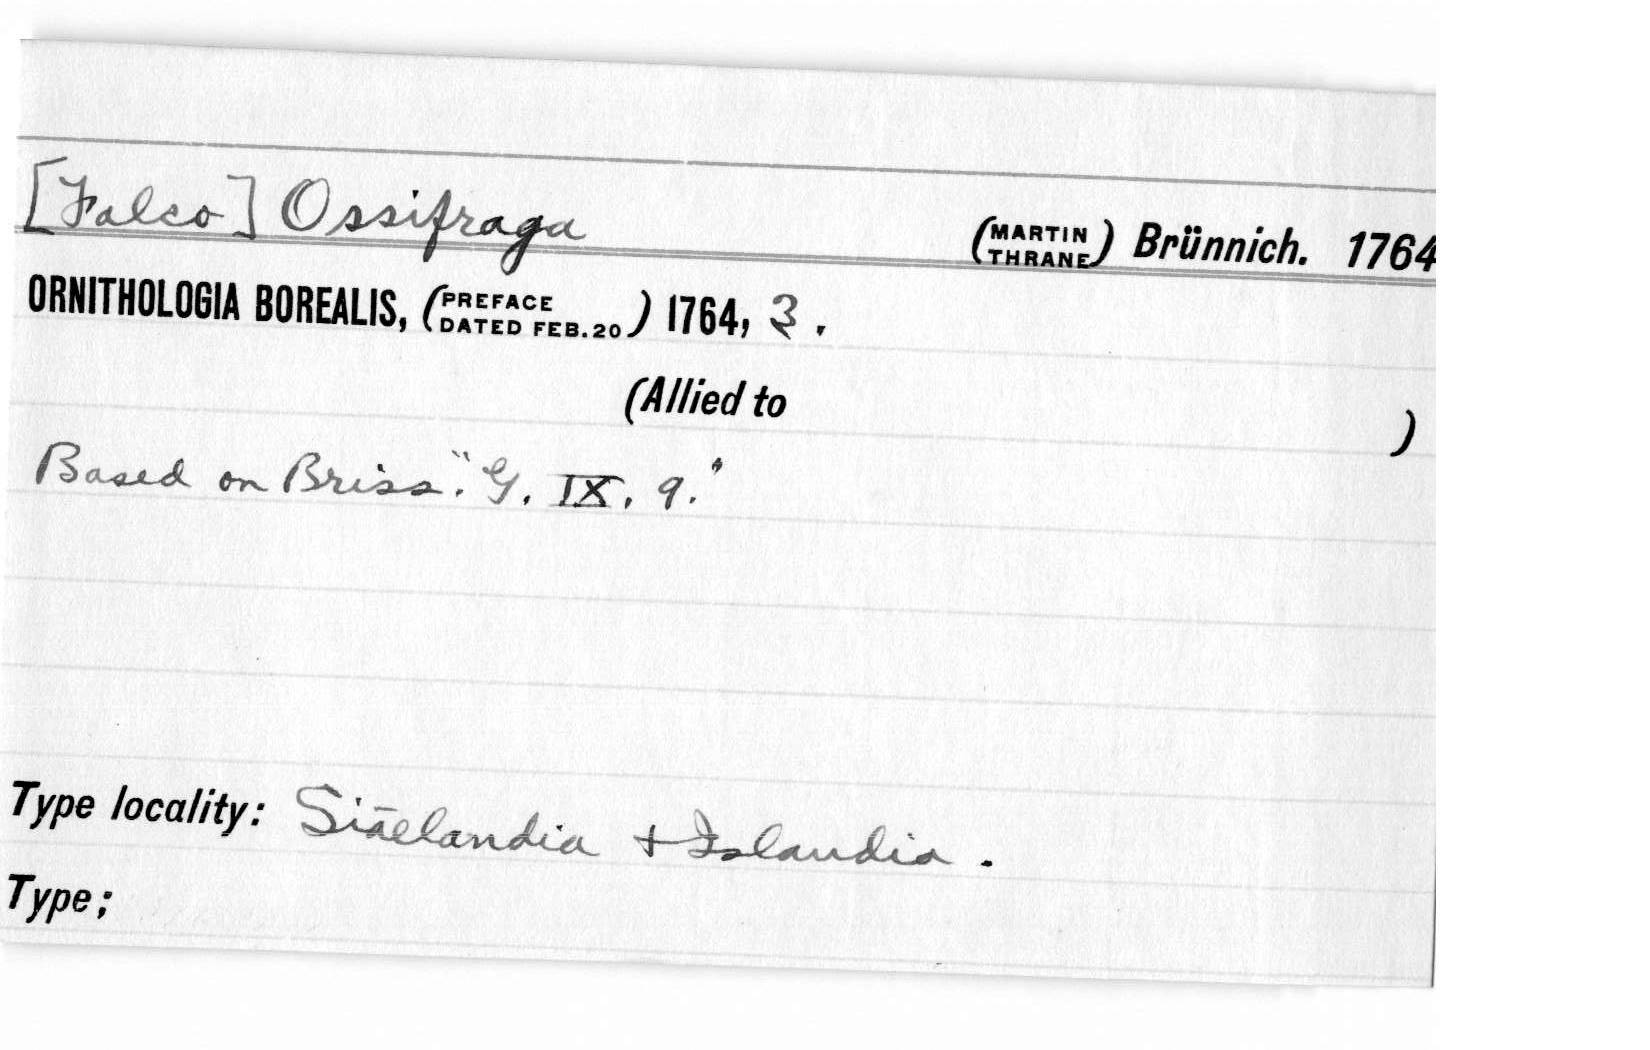 [Falco] Ossifraga (MARTIN THRANE) Brünnich. 1764
ORNITHOLOGIA BOREALIS, (PREFACE DATED FEB. 20) 1764, 3.
(Allied to )
Based on Briss. "G. IX, 9."
Type locality: Siælandia + Islandia.
Type;